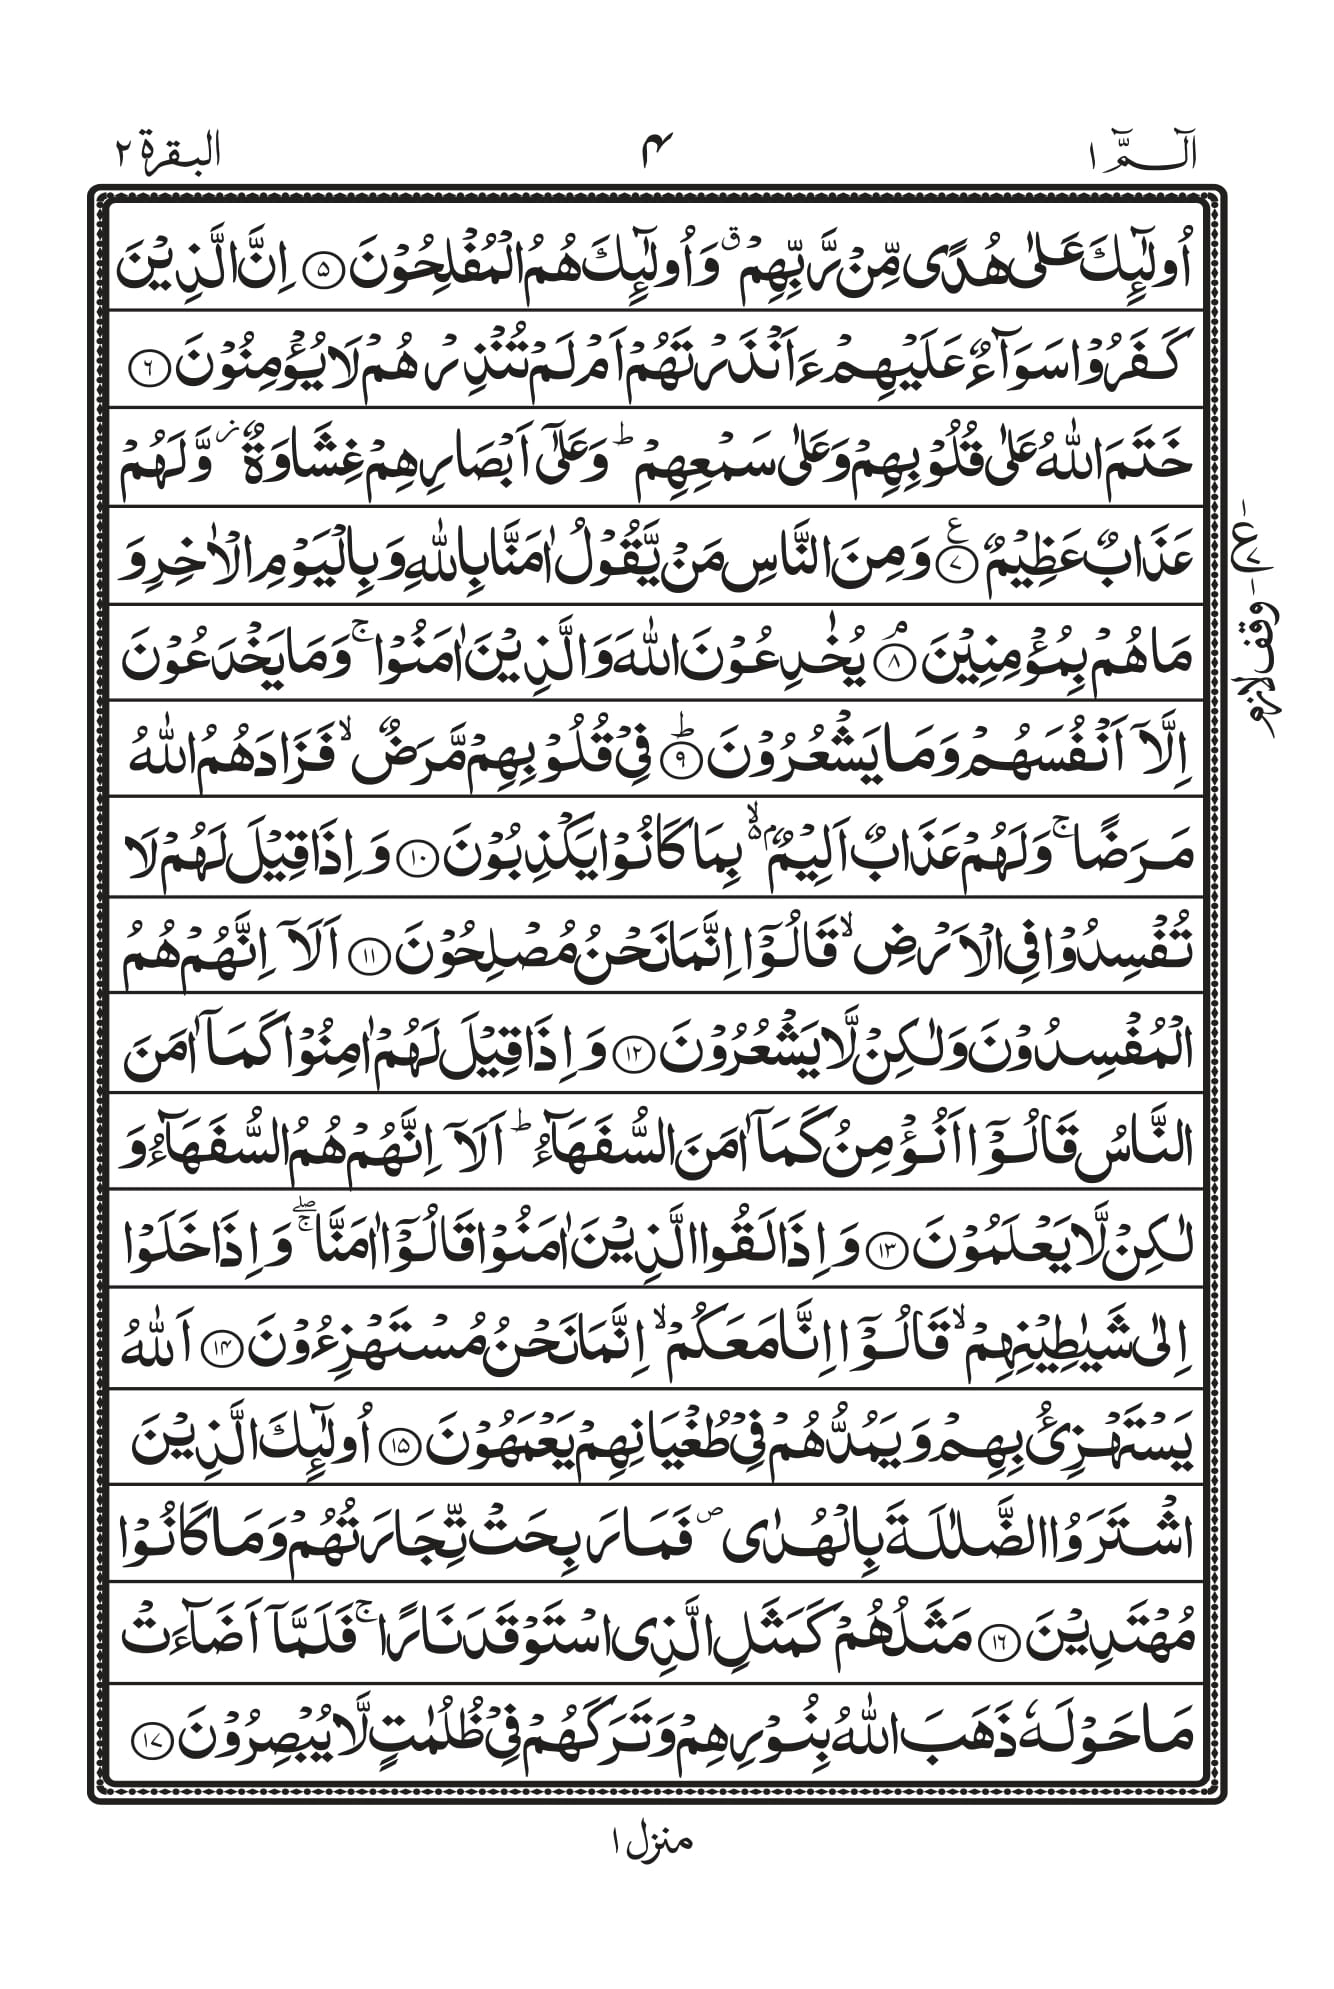 الٓـمّٓ ١
٤
البقرة ٢
اُولٰٓئِكَ عَلٰى هُدًى مِّنْ رَّبِّهِمْ ۗ وَاُولٰٓئِكَ هُمُ الْمُفْلِحُوْنَ ۵ اِنَّ الَّذِيْنَ
كَفَرُوْا سَوَآءٌ عَلَيْهِمْ ءَاَنْذَرْتَهُمْ اَمْ لَمْ تُنْذِرْهُمْ لَا يُؤْمِنُوْنَ ۶
خَتَمَ اللّٰهُ عَلٰى قُلُوْبِهِمْ وَعَلٰى سَمْعِهِمْ ؕ وَعَلٰٓى اَبْصَارِهِمْ غِشَاوَةٌ ز وَّلَهُمْ
عَذَابٌ عَظِيْمٌ ۷ ع وَمِنَ النَّاسِ مَنْ يَّقُوْلُ اٰمَنَّا بِاللّٰهِ وَبِالْيَوْمِ الْاٰخِرِ وَ
مَا هُمْ بِمُؤْمِنِيْنَ ۘ ۸ يُخٰدِعُوْنَ اللّٰهَ وَالَّذِيْنَ اٰمَنُوْا ۚ وَمَا يَخْدَعُوْنَ
اِلَّآ اَنْفُسَهُمْ وَمَا يَشْعُرُوْنَ ؕ ۹ فِيْ قُلُوْبِهِمْ مَّرَضٌ ۙ فَزَادَهُمُ اللّٰهُ
مَرَضًا ۚ وَلَهُمْ عَذَابٌ اَلِيْمٌۢ ۙ۵ بِمَا كَانُوْا يَكْذِبُوْنَ ۱۰ وَاِذَا قِيْلَ لَهُمْ لَا
تُفْسِدُوْا فِي الْاَرْضِ ۙ قَالُوْٓا اِنَّمَا نَحْنُ مُصْلِحُوْنَ ۱۱ اَلَآ اِنَّهُمْ هُمُ
الْمُفْسِدُوْنَ وَلٰكِنْ لَّا يَشْعُرُوْنَ ۱۲ وَاِذَا قِيْلَ لَهُمْ اٰمِنُوْا كَمَآ اٰمَنَ
النَّاسُ قَالُوْٓا اَنُؤْمِنُ كَمَآ اٰمَنَ السُّفَهَآءُ ؕ اَلَآ اِنَّهُمْ هُمُ السُّفَهَآءُ وَ
لٰكِنْ لَّا يَعْلَمُوْنَ ۱۳ وَاِذَا لَقُوا الَّذِيْنَ اٰمَنُوْا قَالُوْٓا اٰمَنَّا ۖۚ وَاِذَا خَلَوْا
اِلٰى شَيٰطِيْنِهِمْ ۙ قَالُوْٓا اِنَّا مَعَكُمْ ۙ اِنَّمَا نَحْنُ مُسْتَهْزِءُوْنَ ۱۴ اَللّٰهُ
يَسْتَهْزِئُ بِهِمْ وَيَمُدُّهُمْ فِيْ طُغْيَانِهِمْ يَعْمَهُوْنَ ۱۵ اُولٰٓئِكَ الَّذِيْنَ
اشْتَرَوُا الضَّلٰلَةَ بِالْهُدٰى ص فَمَا رَبِحَتْ تِّجَارَتُهُمْ وَمَا كَانُوْا
مُهْتَدِيْنَ ۱۶ مَثَلُهُمْ كَمَثَلِ الَّذِى اسْتَوْقَدَ نَارًا ۚ فَلَمَّآ اَضَآءَتْ
مَا حَوْلَهٗ ذَهَبَ اللّٰهُ بِنُوْرِهِمْ وَتَرَكَهُمْ فِيْ ظُلُمٰتٍ لَّا يُبْصِرُوْنَ ۱۷
ع ٧
وقف لازم
منزل ١